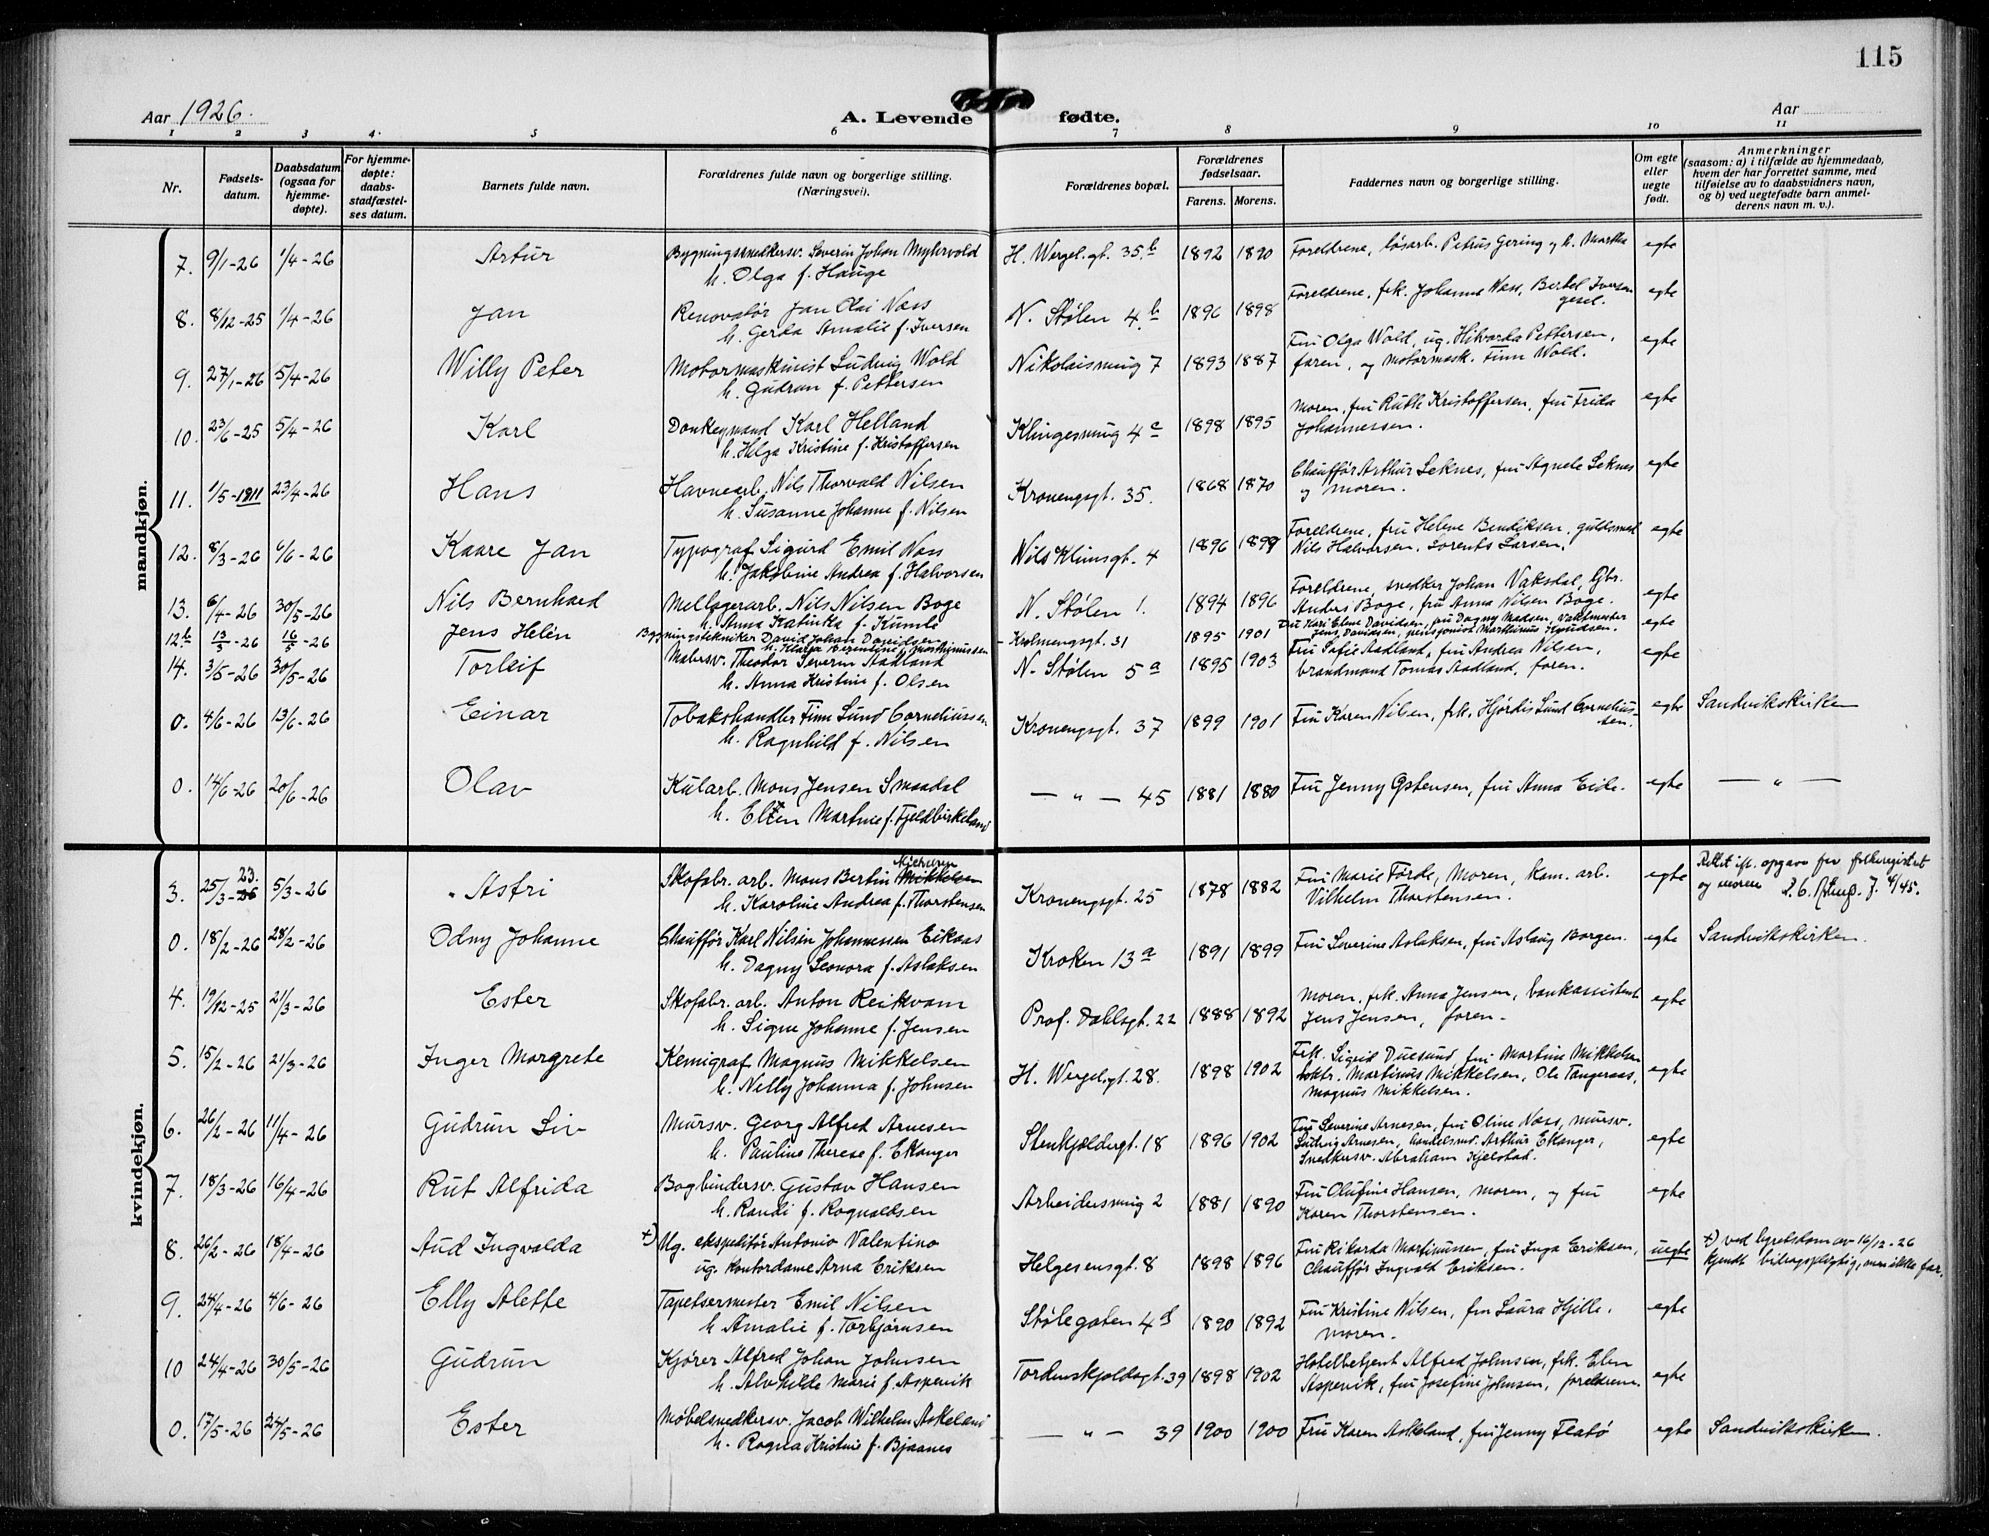 115
Aar 1926.
A. Levende fødte.
Aar
1 2 3 4. 5 6 7 8 9 10 11
Nr.
Fødsels-
datum.
Daabsdatum
(ogsaa for
hjemme-
døpte).
For hjemme-
døpte:
daabs-
stadfæstel-
ses datum.
Barnets fulde navn.
Forældrenes fulde navn og borgerlige stilling.
(Næringsvei).
Forældrenes bopæl.
Forældrenes
fødselsaar.
Farens. Morens.
Faddernes navn og borgerlige stilling.
Om egte
eller
uegte
født.
Anmerkninger
(saasom: a) i tilfælde av hjemmedaab,
hvem der har forrettet samme, med
tilføielse av to daabsvidners navn,
og b) ved uegtefødte barn anmel-
derens navn m. v.).
mandkjøn.
7. 9/1-26 1/4-26 Artur Bygningssnedkersv. Severin Johan Myhrvold H. Wergel.gt. 35.b 1892 1890 Foreldrene, løsarb. Petrus Gering og h. Martha egte
h. Olga f. Hauge
8. 8/12-25 1/4-26 Jan Renovatør Jan Olai Næss N. Stølen 4.b 1896 1898 Foreldrene, frk. Johanne Næss, Bertel Iversen egte
h. Gerda Amalie f. Iversen gesel.
9. 27/1-26 5/4-26 Willy Peter Motormaskinist Ludvig Wold Nikolaismug 7 1893 1887 Fru Olga Wold, ug. Hilvarda Pettersen, egte
h. Gudrun f. Pettersen faren, og motormask. Finn Wold.
10. 23/6-25 5/4-26 Karl Donkeymand Karl Helland Klingesmug 4c 1898 1895 Moren, fru Ruth Kristoffersen, fru Frida egte
h. Helga Kristine f. Kristoffersen Johannessen.
11. 1/5-1911 23/4-26 Hans Havnearb. Nils Thorvald Nilsen Kronengsgt. 35. 1868 1870 Chauffør Arthur Seknes, fru Agnete Seknes egte
h. Susanne Johanne f. Nilsen og moren.
12. 8/3-26 6/6-26 Kaare Jan Typograf Sigurd Emil Næss Nils Klimsgt. 4 1896 1899 Foreldrene, fru Helene Bendiksen, guldsmed egte
h. Jakobine Andrea f. Halvorsen Nils Halvorsen, Lorents Larsen.
13. 6/4-26 30/5-26 Nils Bernhard Mellagerarb. Nils Nilsen Boge N. Stølen 1. 1894 1896 Foreldrene, snedker Johan Vaksdal, Gbr. egte
h. Anna Katinka f. Kumle Anders Boge, fru Anna Nilsen Boge.
12b 13/3-26 16/5-26 Jens Helén Bygningstekniker David Johan Davidsen Krolnengsgt. 31 1895 1901 Fru Kari Elene Davidsen, fru Dagny Madsen, Vaktmester egte
h. Klara Berentine f. Marthinussen Jens Davidsen, pensjonist Marthinus Knudsen.
14. 3/5-26 30/5-26 Torleif Malersv. Theodor Severin Aadland N. Stølen 5a 1895 1903 Fru Sofie Aadland, fru Andrea Nilsen, egte
h. Anna Kristine f. Olsen brandmand Tomas Aadland, faren.
0. 4/6-26 13/6-26 Einar Tobakshandler Finn Lund Corneliussen Kronengsgt. 37 1899 1901 Fru Karen Nilsen, frk. Hjørdis Lund Cornelius- egte Sandvikskirken
h. Ragnhild f. Nilsen sen.
0. 14/6-26 20/6-26 Olav Kularb. Mons Jensen Smaadal — " — 45 1881 1880 Fru Jenny Ostensen, fru Anna Eide. egte — " —
h. Ellen Martine f. Fjeldbirkeland
kvindekjøn.
3. 25/3-23. 26 5/3-26 Astri Skofabr. arb. Mons Bertin Mikkelsen Kronengsgt. 25 1878 1882 Fru Marie Førde, moren, kom. arb. egte Rettet ifl. opgave fra folkeregistret
h. Karoline Andrea f. Thorstensen Vilhelm Thorstensen. og moren 4/45.
0. 18/2-26 28/2-26 Odny Johanne Chauffør Karl Nilsen Johannessen Eikaas Kroken 13a 1891 1899 Fru Severine Aslaksen, fru Aslaug Borgen. egte Sandvikskirken.
h. Dagny Leonora f. Aslaksen
4. 19/12-25 21/3-26 Ester Skofabr. arb. Anton Reikvam Prof. Dahlsgt. 22 1888 1892 Moren, frk. Anna Jensen, bankassistent egte
h. Signe Johanne f. Jensen Jens Jensen, faren.
5. 15/2-26 21/3-26 Inger Margrete Kemigraf Magnus Mikkelsen H. Wergel.gt. 28. 1898 1902 Frk. Sigrid Duesund, fru Martine Mikkelsen egte
h. Nelly Johanna f. Johnsen bokbr. Martinus Mikkelsen, Ole Tangeraas,
Magnus Mikkelsen.
6. 26/2-26 11/4-26 Gudrun Liv Mursv. Georg Alfred Arnesen Stenkjeldergt. 18 1896 1902 Fru Severine Arnesen, fru Oline Næss, mursv. egte
h. Pauline Therese f. Ekanger Ludvig Arnesen, handelsmd. Arthur Ekanger,
Snedkersv. Abraham Kjelstad.
7. 18/3-26 16/4-26 Rut Alfrida Bogbindersv. Gustav Hansen Arbeidersmug 2 1881 1890 Fru Olufine Hansen, moren, og fru egte
h. Randi f. Rognaldsen Karen Thorstensen.
8. 26/2-26 18/4-26 Aud Ingvalda +) Ug. ekspeditør Antonio Valentino Helgesensgt. 8 1898 1896 Fru Rikarda Martinussen, fru Inga Eriksen, uegte +) ved byretsdom av 16/12-26
ug. kontordame Arna Eriksen Chauffør Ingvald Eriksen. kjendt bidragspligtig, men ikke far.
9. 24/4-26 4/6-26 Elly Alette Tapetsermester Emil Nilsen Stølegaten 4d 1890 1892 Fru Kristine Nilsen, fru Laura Hjelle, egte
h. Amalie f. Torbjørnsen moren.
10 24/4-26 30/5-26 Gudrun Kjører Alfred Johan Johnsen Tordenskjoldsgt. 39 1898 1902 Hotelbetjent Alfred Johnsen, frk. Elen egte
h. Alvhilde Marie f. Aspevik Aspevik, fru Josefine Johnsen, foreldrene.
0. 17/5-26 24/5-26 Ester Møbelsnedkersv. Jacob Wilhelm Askeland — " — 39 1900 1900 Fru Karen Askeland, fru Jenny Flatø egte Sandvikskirken.
h. Ragna Kristine f. Bjaanes